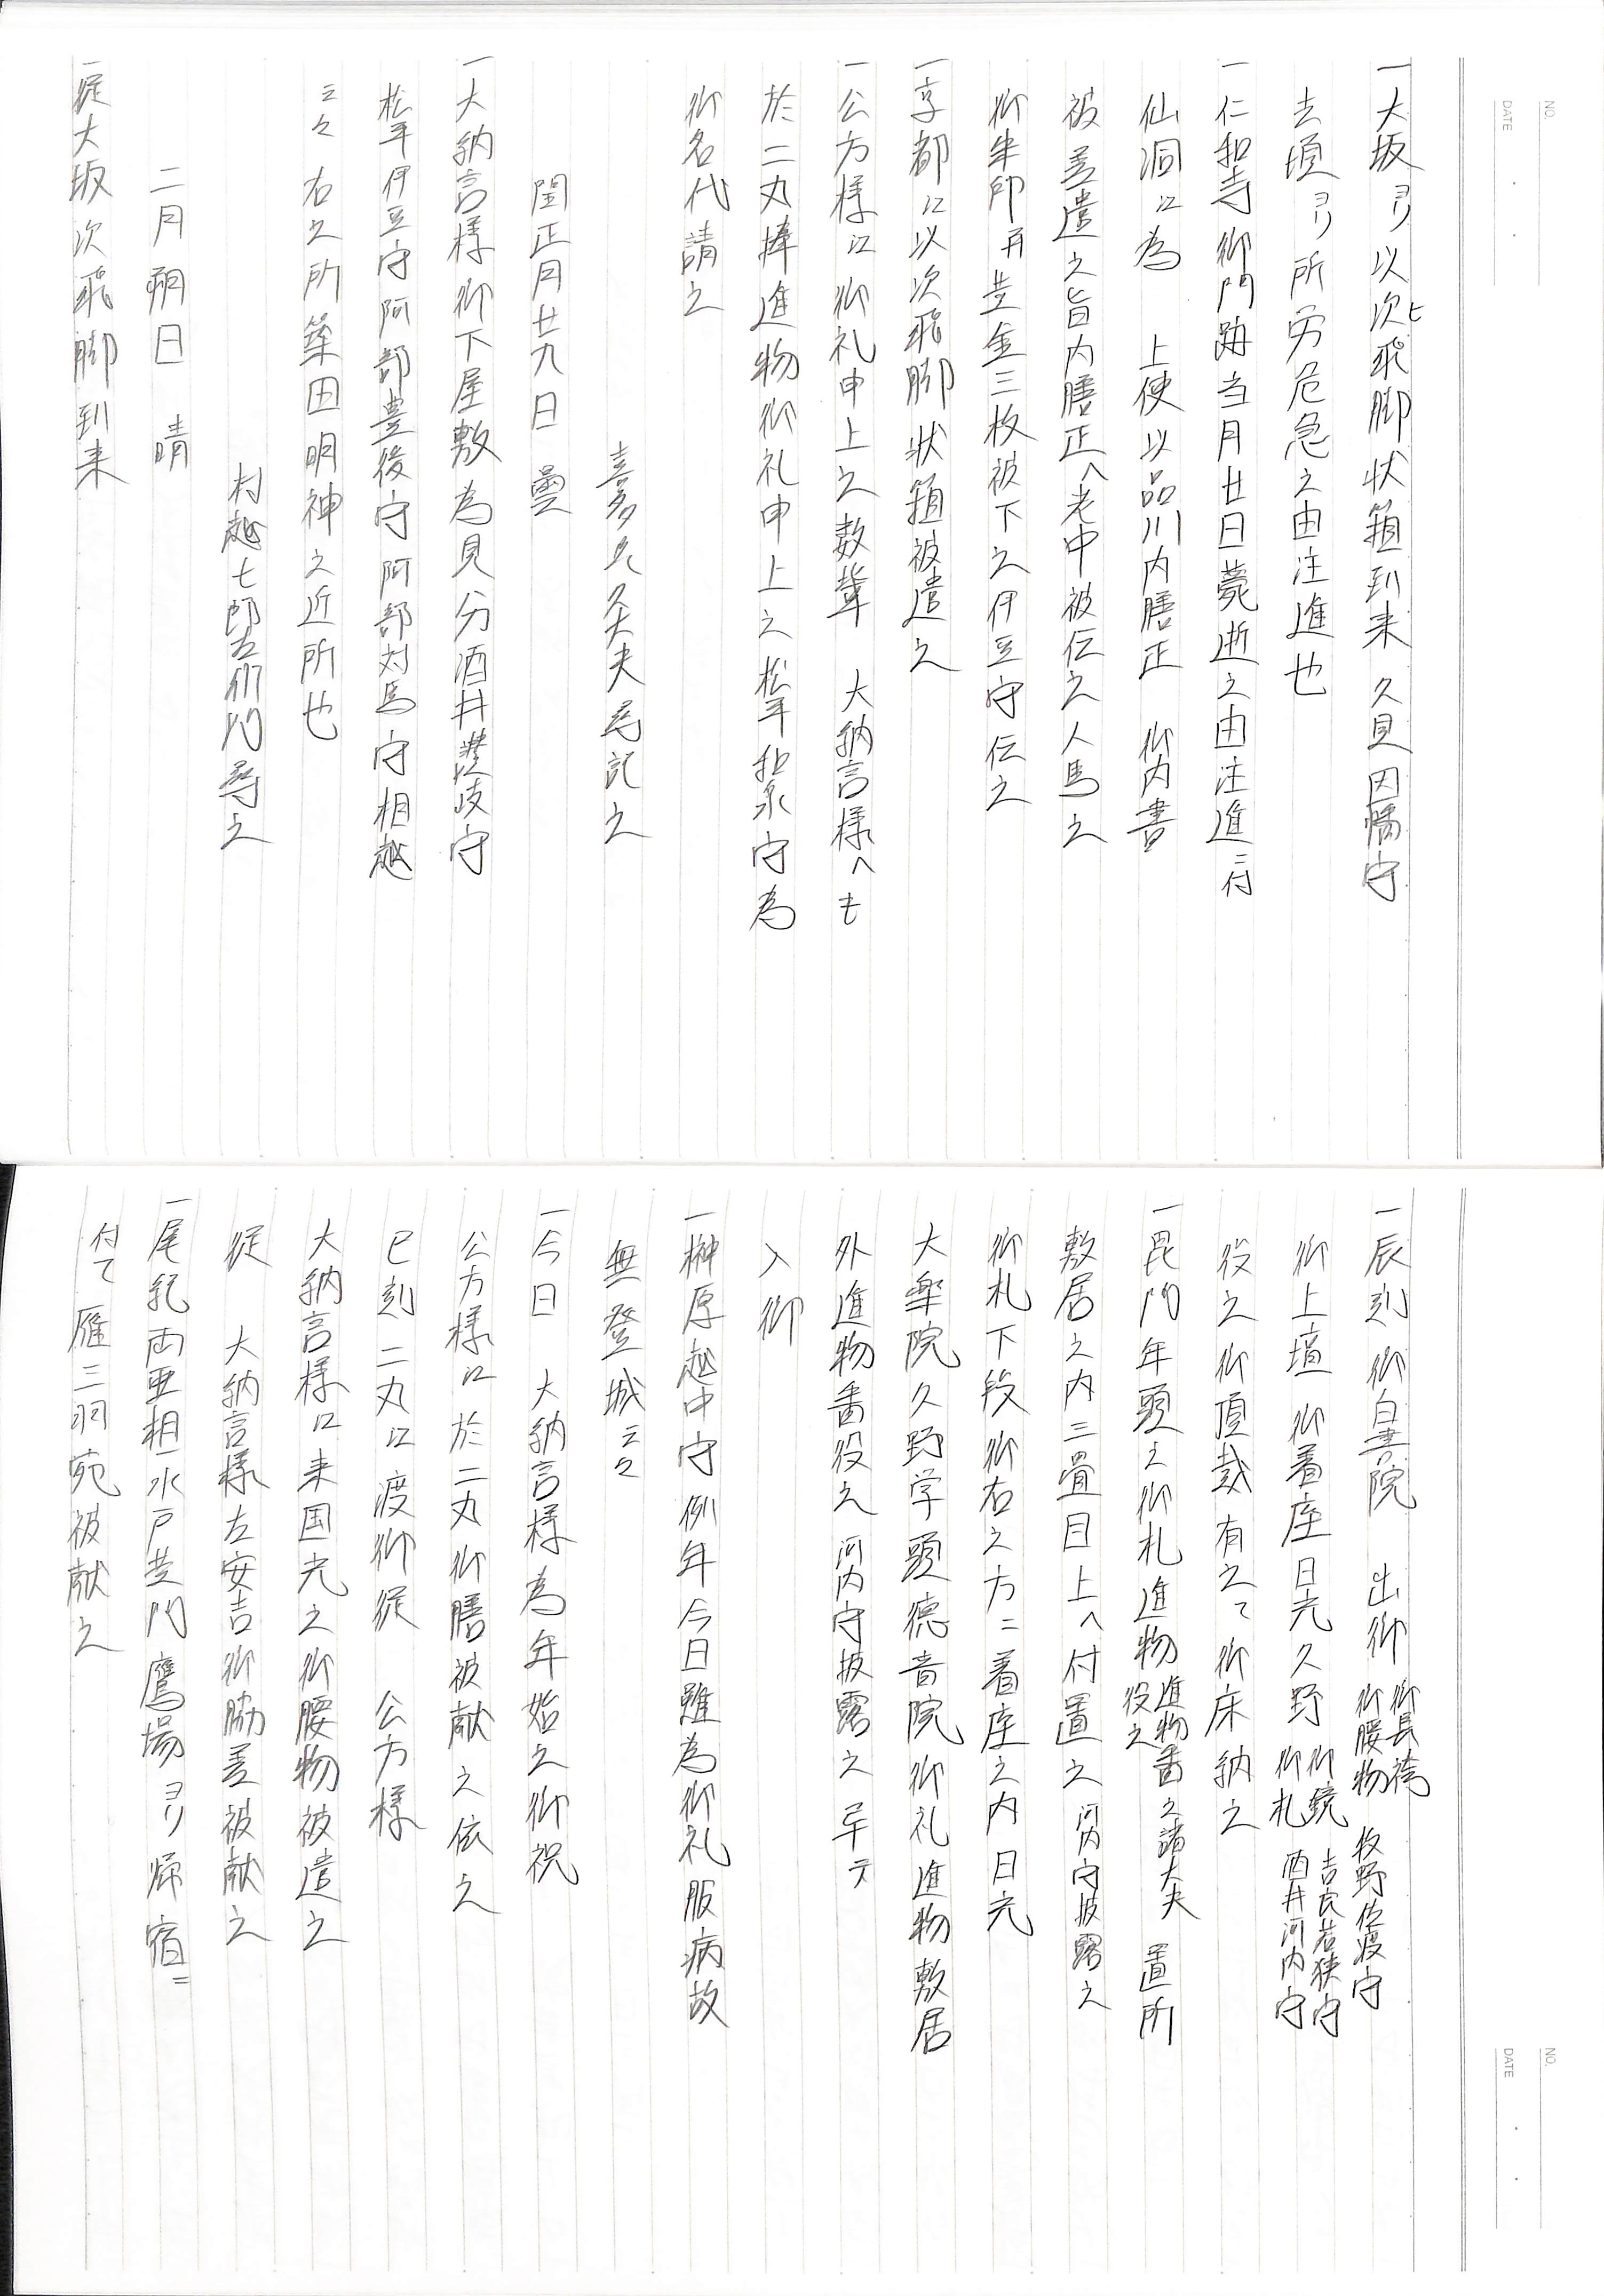 NO.
DATE
一大坂ヨリ以次飛脚状箱到来 久貝因幡守
去頃ヨリ所労危急之由注進也
一仁和寺御門跡当月廿日薨逝之由注進ニ付
仙洞江為 上使以品川内膳正 御内書
被差遣之旨内膳正へ老中被伝之人馬之
御朱印并黄金三枚被下之伊豆守伝之
一京都江以次飛脚状箱被遣之
一公方様江御礼申上之数輩 大納言様へも
於二丸捧進物御礼申上之松平和泉守為
御名代請之
喜多見久大夫尾記之
閏正月廿九日 曇
一大納言様御下屋敷為見分酒井讃岐守
松平伊豆守阿部豊後守阿部対馬守相越
云々 右之所築田明神之近所也
村越七郎左衛門尋之
二月朔日 晴
一従大坂次飛脚到来
NO.
DATE
一辰刻御白書院 出御 御長袴 御腰物 牧野佐渡守
御上壇御着座日光久野 御鏡 御札 吉良若狭守 酒井河内守
役之御頂戴有之て御床納之
一毘門年頭之御札進物 進物番之諸大夫役之 置所
敷居之内三畳目上へ付置之 河内守披露之
御札下段御右之方ニ着座之内日光
大楽院久野学頭徳音院御礼進物敷居
外進物番役之 河内守披露之畢テ
入御
一榊原越中守例年今日雖為御礼服病故
無登城云々
一今日 大納言様為年始之御祝
公方様江於二丸御膳被献之依之
巳刻二丸江渡御従 公方様
大納言様江来国光之御腰物被遣之
従 大納言様左安吉御脇差被献之
一尾紀両亜相水戸黄門鷹場ヨリ帰宿ニ
付て雁三羽宛被献之